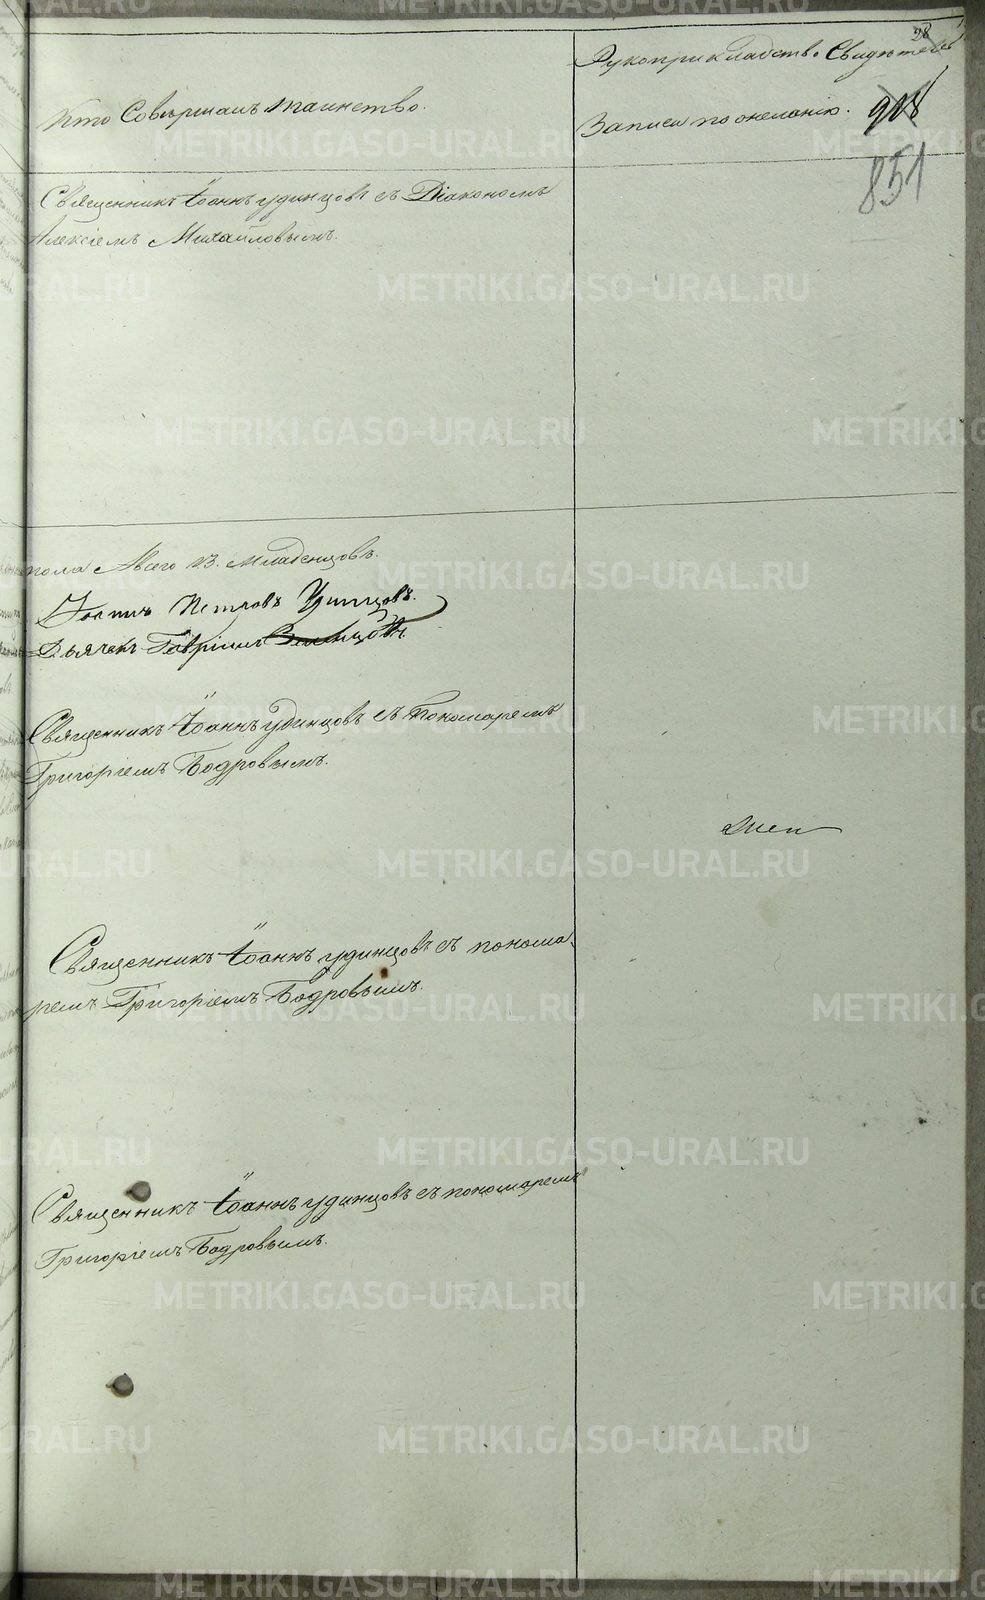 98
Кто Совершалъ таинство.
Рукоприкладство Свидѣтелей
Записи по желанію.
908
851
Священникъ Іоаннъ Удинцовъ съ Діакономъ
Алексіемъ Михайловымъ.
пола Всего 13. младенцовъ.
Іоаннъ Петровъ Удинцовъ.
Дьячекъ Гавріилъ
Священникъ Іоаннъ Удинцовъ съ Пономаремъ
Григоріемъ Бодровымъ.
Священникъ Іоаннъ Удинцовъ съ понома
ремъ Григоріемъ Бодровымъ.
Священникъ Іоаннъ Удинцовъ съ пономаремъ
Григоріемъ Бодровымъ.
METRIKI.GASO-URAL.RU